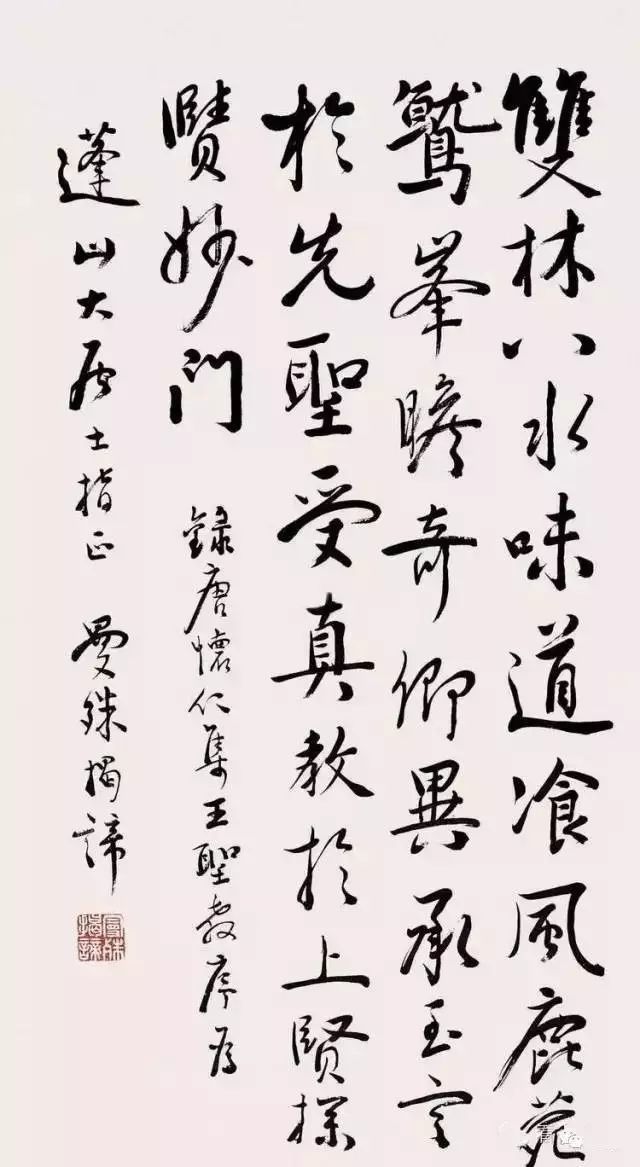 雙林八水味道飡風鹿菀
鷲峯瞻奇仰異承至言
於先聖受真教於上賢探
賾妙門　錄唐懷仁集王聖教序為
蓬山大居士指正　曼殊揭諦
曼殊揭諦